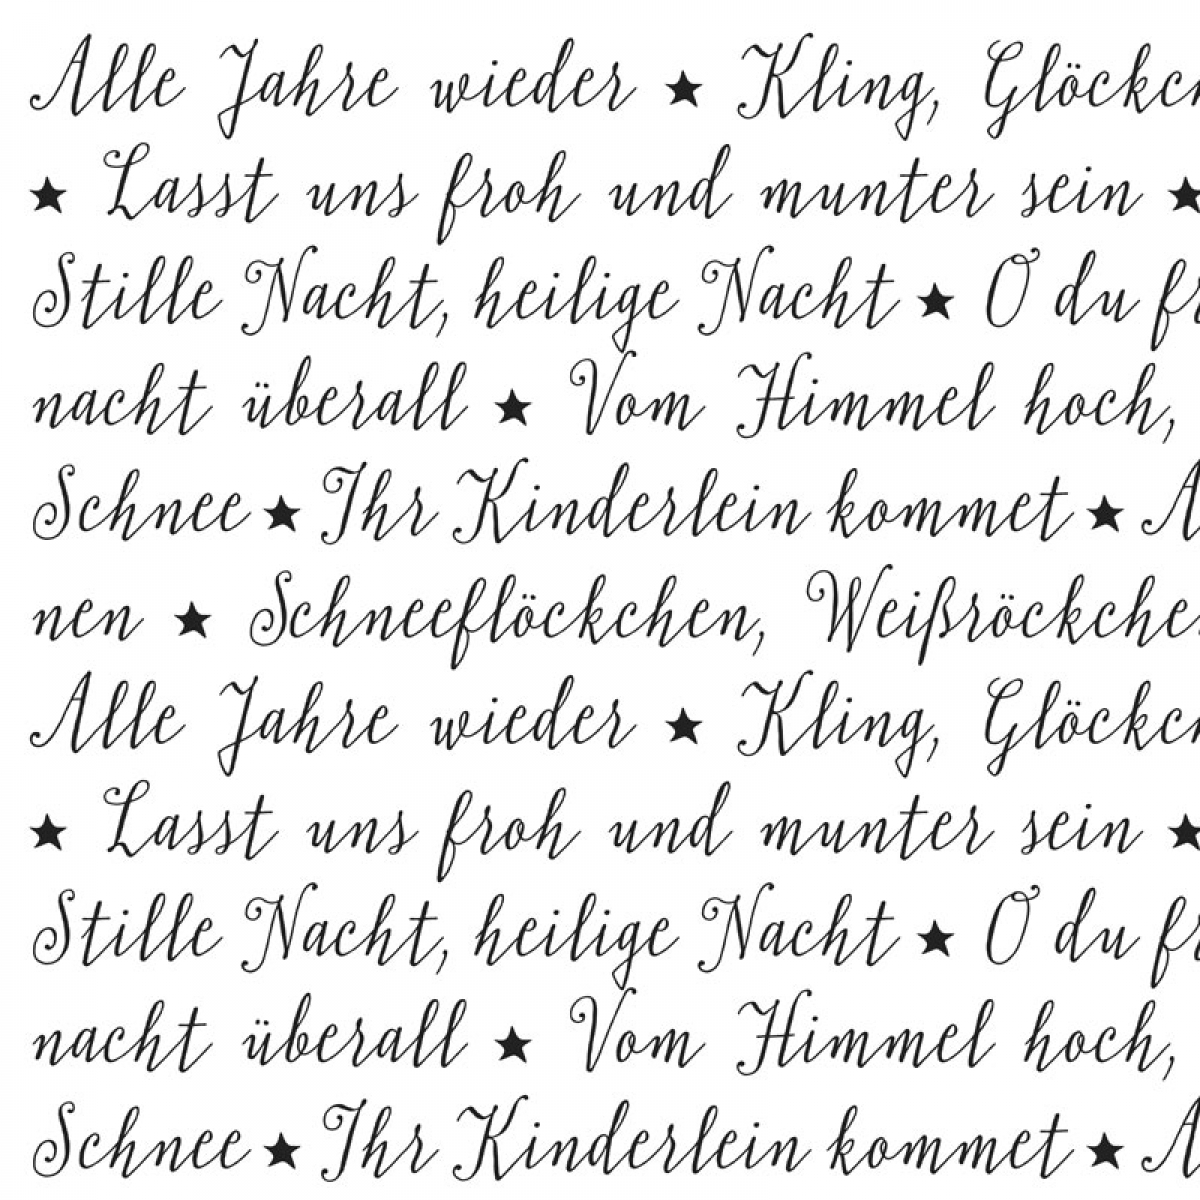 Alle Jahre wieder ★ Kling, Glöckc
★ Lasst uns froh und munter sein ★
Stille Nacht, heilige Nacht ★ O du fr
nacht überall ★ Vom Himmel hoch,
Schnee ★ Ihr Kinderlein kommet ★ A
nen ★ Schneeflöckchen, Weißröckche
Alle Jahre wieder ★ Kling, Glöckc
★ Lasst uns froh und munter sein ★
Stille Nacht, heilige Nacht ★ O du fr
nacht überall ★ Vom Himmel hoch,
Schnee ★ Ihr Kinderlein kommet ★ A